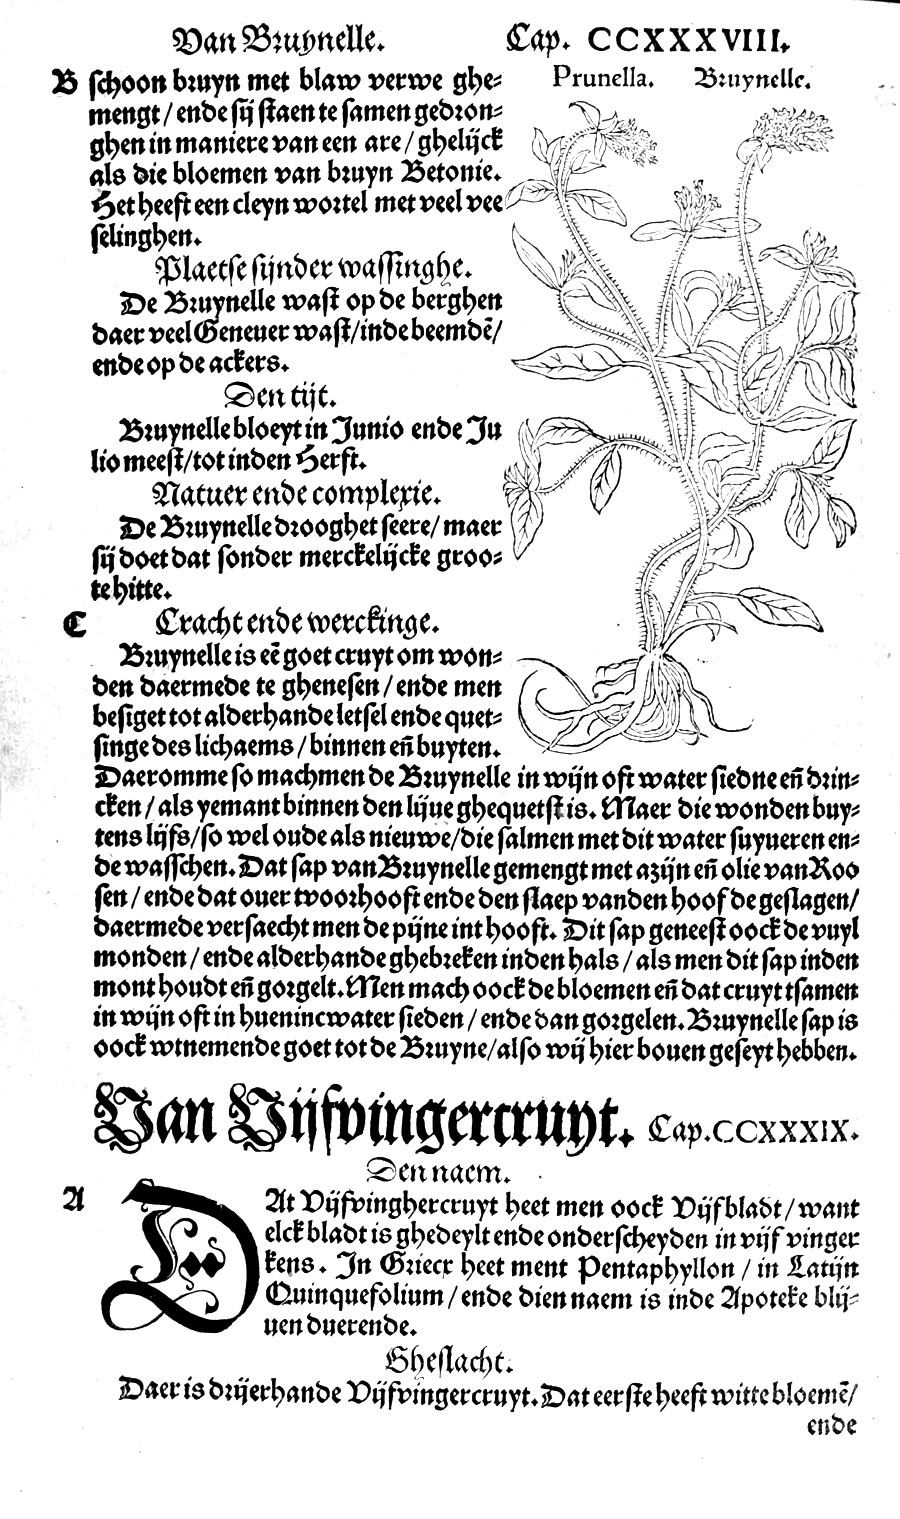 Van Bruynelle. Cap. CCXXXVIII.
Prunella. Bruynelle.
B schoon bruyn met blaw verwe ghe⸗
mengt / ende sij staen te samen gedron⸗
ghen in maniere van een are / ghelijck
als die bloemen van bruyn Betonie.
Het heeft een cleyn wortel met veel vee
selinghen.
Plaetse sijnder wassinghe.
De Bruynelle wast op de berghen
daer veel Geneuer wast/inde beemdē/
ende op de ackers.
Den tijt.
Bruynelle bloeyt in Junio ende Ju
lio meest/tot inden Herfst.
Natuer ende complexie.
De Bruynelle drooghet seere/ maer
sij doet dat sonder merckelijcke groo⸗
te hitte.
C Cracht ende werckinge.
Bruynelle is eē goet cruyt om won⸗
den daermede te ghenesen / ende men
besiget tot alderhande letsel ende quet⸗
singe des lichaems / binnen en̄ buyten.
Daeromme so machmen de Bruynelle in wijn oft water siedne en̄ drin⸗
cken / als yemant binnen den lijue ghequetst is. Maer die wonden buy⸗
tens lijfs/so wel oude als nieuwe/die salmen met dit water suyueren en⸗
de wasschen. Dat sap van Bruynelle gemengt met azijn en̄ olie van Roo
sen / ende dat ouer tvoorhooft ende den slaep vanden hoofde geslagen/
daermede versaecht men de pijne int hooft. Dit sap geneest oock de vuyl
monden / ende alderhande ghebreken inden hals / als men dit sap inden
mont houdt en̄ gorgelt. Men mach oock de bloemen en̄ dat cruyt tsamen
in wijn oft in huenincwater sieden / ende dan gorgelen. Bruynelle sap is
oock wtnemende goet tot de Bruyne/also wij hier bouen geseyt hebben.
Van Vijfvingercruyt. Cap. CCXXXIX.
Den naem.
A DAt Vijfvinghercruyt heet men oock Vijfbladt / want
elck bladt is ghedeylt ende onderscheyden in vijf vinger
kens. In Griecx heet ment Pentaphyllon / in Latijn
Quinquefolium / ende dien naem is inde Apoteke blij⸗
uen duerende.
Gheslacht.
Daer is drijerhande Vijfvingercruyt. Dat eerste heeft witte bloemē/
ende